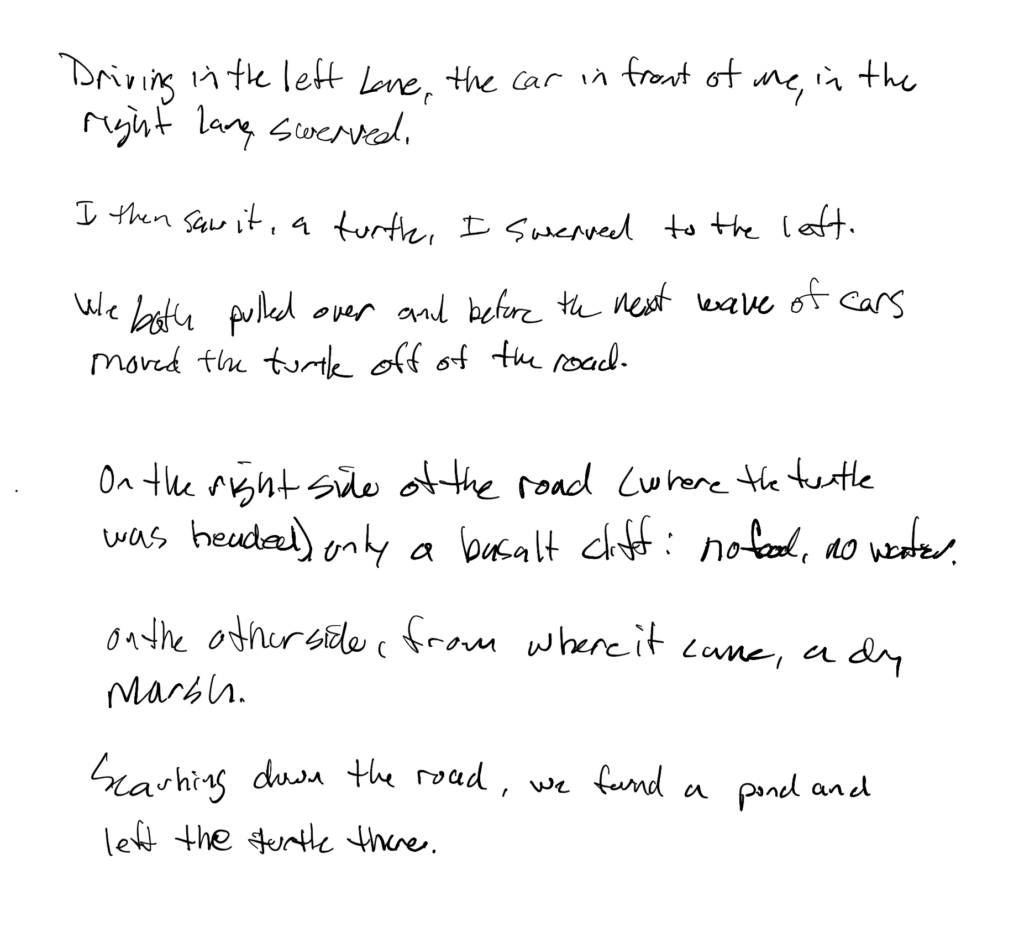 Driving in the left lane, the car in front of me, in the
right lane, swerved.
I then saw it, a turtle, I swerved to the left.
We both pulled over and before the next wave of cars
moved the turtle off of the road.
On the right side of the road (where the turtle
was headed), only a basalt cliff: no food, no water.
on the other side, from where it came, a dry
marsh.
Searching down the road, we found a pond and
left the turtle there.